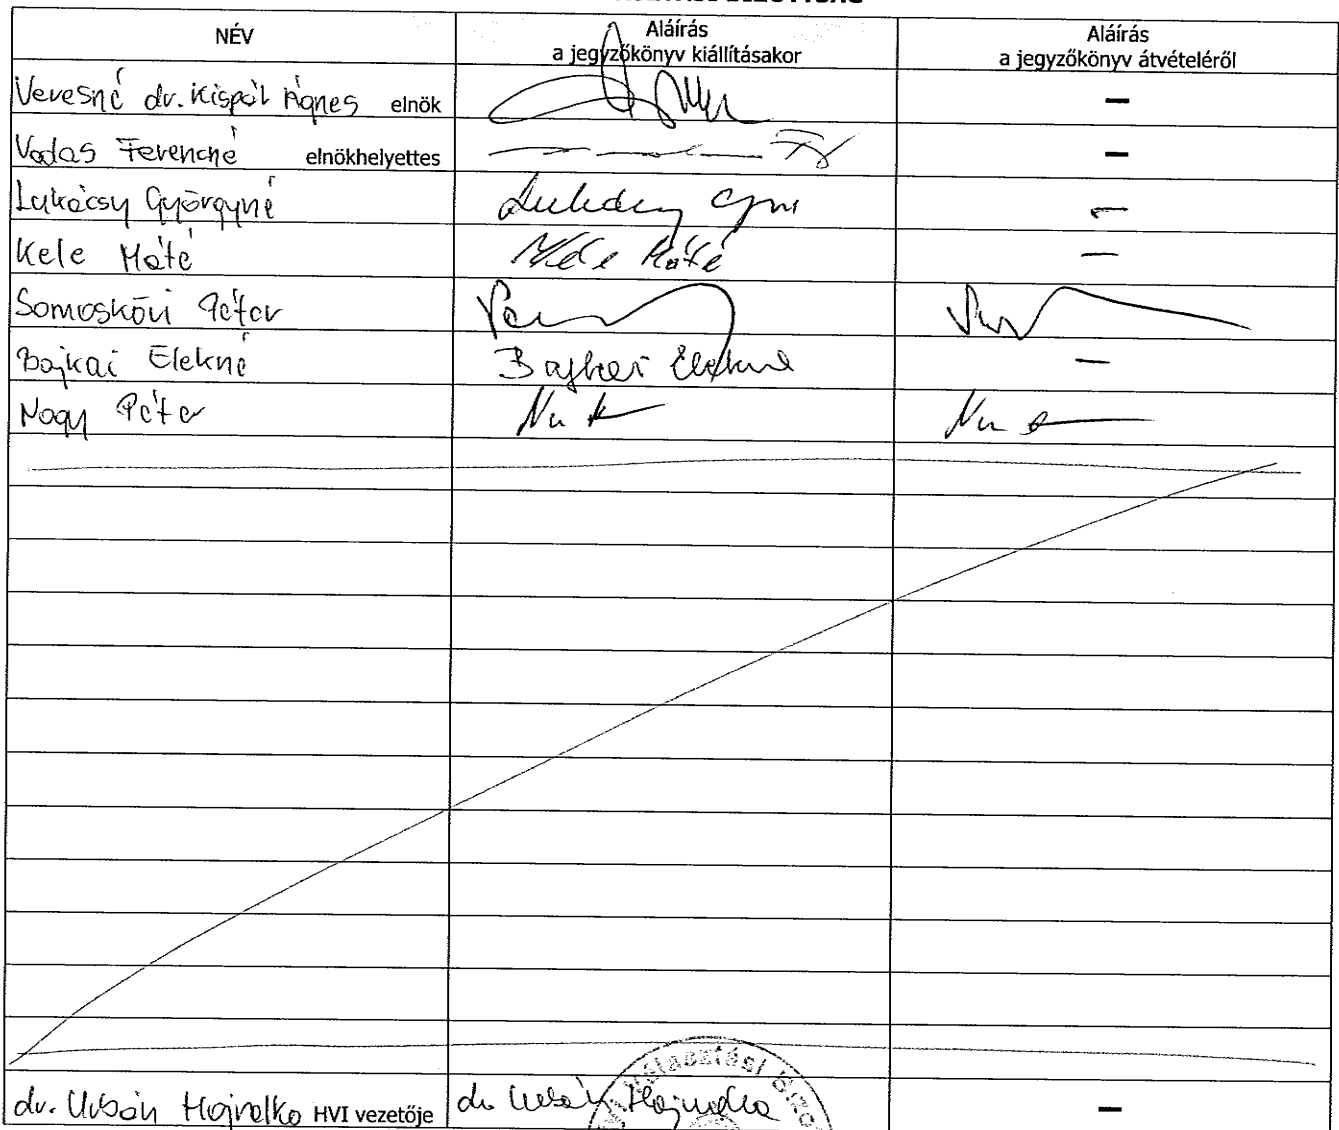 NÉV
Aláírás
a jegyzőkönyv kiállításakor
Aláírás
a jegyzőkönyv átvételéről
Veresné dr. Kispál Ágnes elnök
—
Vadas Ferencné elnökhelyettes
—
Lukácsy Györgyné
—
Kele Máté Kele Máté
—
Somoskövi Péter
Bajkai Elekné Bajkai Elekné
—
Nagy Péter
dr. Urbán Hajnalka HVI vezetője dr. Urbán Hajnalka
—
Választási Bizo